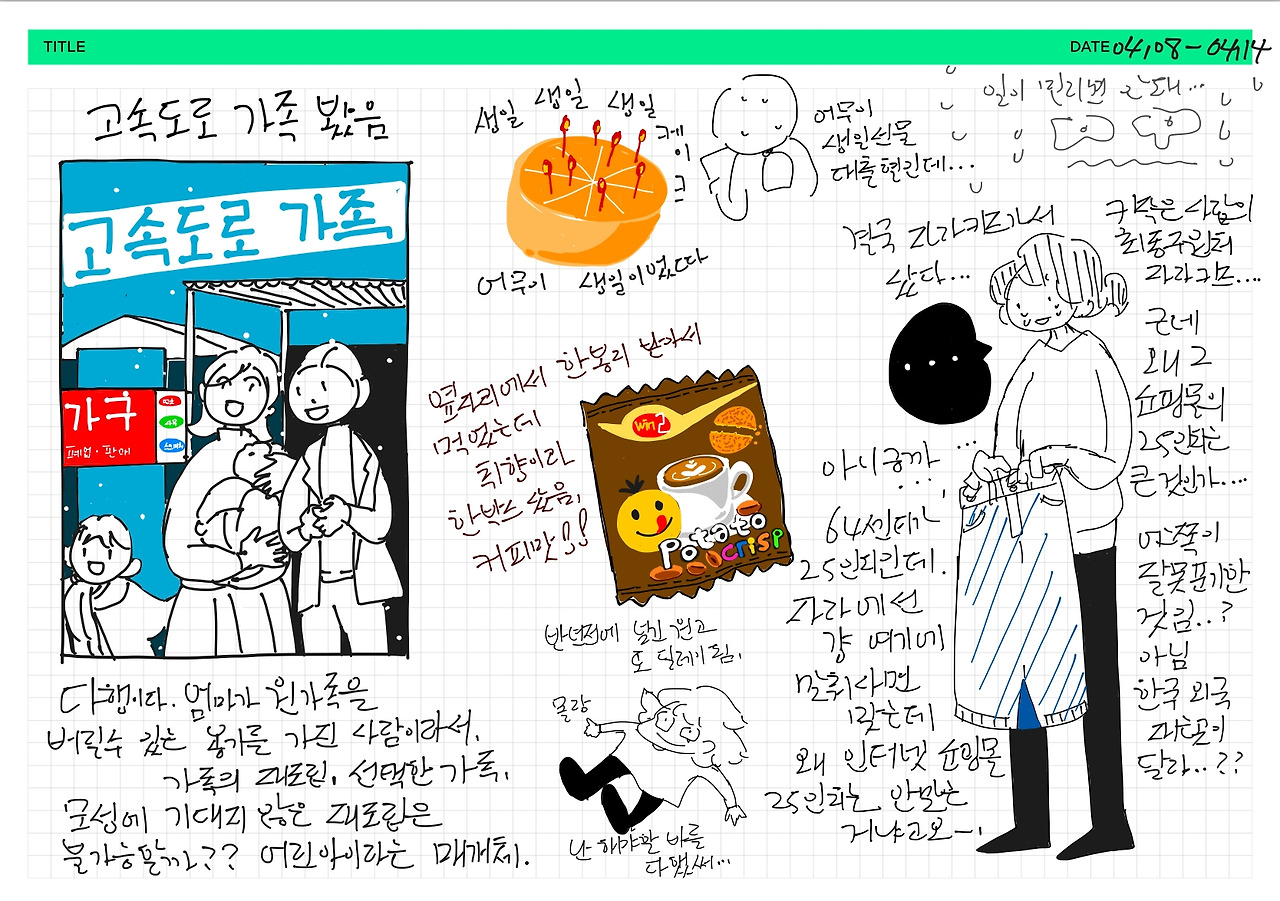 TITLE
DATE 04,08 - 04,14
고속도로 가족 봤음
고속도로 가족
가구
폐업 · 판매
다행이다. 엄마가 원가족을
버릴수 있는 용기를 가진 사람이라서.
가족의 재조립. 선택한 가족.
모성에 기대지 않은 재조립은
불가능할까?? 어린아이라는 매개체.
생일 생일 생일
케이크
어무이 생일이었따
어무이
생일선물
대출현인데...
일이 밀리면 안돼...
옆자리에서 한봉리 받아서
먹었는데
취향이라
한박스 샀음,
커피맛!!
win2
Potato
crisp
반년전에 넘긴 원고
또 딜레이 됨.
몰랑
난 해야할 바를
다했써...
결국 자라키즈가서
샀다...
키작은 사람의
최종주원처
자라키즈....
근데
왜 그
쇼핑몰의
25인치는
큰 것인가....
아시궁까...,
64센티가
25인치인데.
자라에선
걍 여기에
맞춰사면
맞는데
왜 인터넷 쇼핑몰
25인치는 안맞는
거냐고오ㅡ.
이쪽이
잘못표기한
것임..?
아님
한국 외국
자이
달라..??